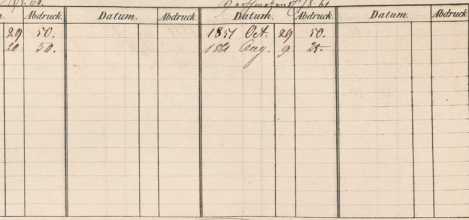 Abdruck. Datum. Abdruck. Datum. Abdruck. Datum. Abdruck.
29 50. 1851 Oct. 29 50.
20 50. Aug. 9 25-